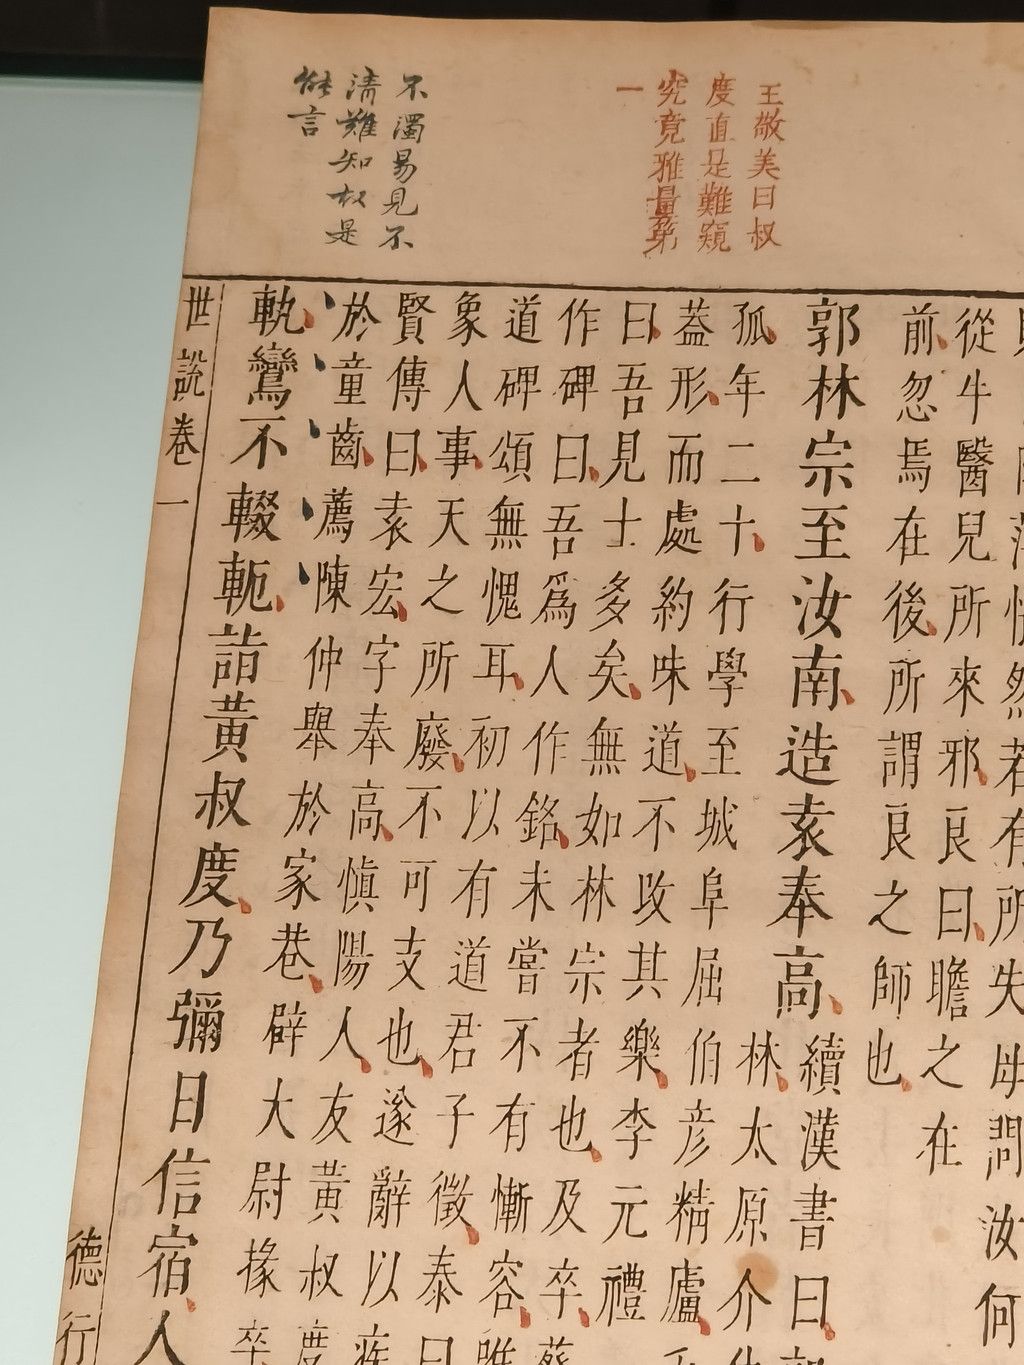 王敬美曰叔
度直是難窺
究竟雅量第
一
不濁易見不
清難知叔是
能言
然若有所失母問汝何
從牛醫兒所來邪良曰瞻之在
前忽焉在後所謂良之師也
郭林宗至汝南造袁奉高
續漢書曰郭
林太原介休
孤年二十行學至城阜屈伯彥精廬乏
蓋形而處約味道不改其樂李元禮
曰吾見士多矣無如林宗者也及卒蔡
作碑曰吾爲人作銘未嘗不有慚容唯
道碑頌無愧耳初以有道君子徵泰曰
象人事天之所廢不可支也遂辭以疾
賢傳曰袁宏字奉高慎陽人友黃叔度
於童齒薦陳仲舉於家巷辟大尉掾卒
軌鸞不輟軛詣黃叔度乃彌日信宿人
世說卷一
德行